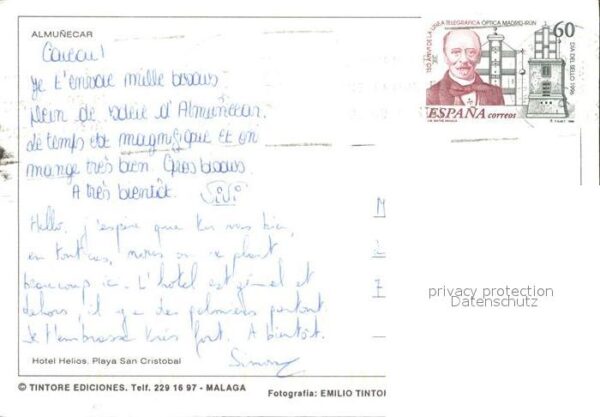 ALMUÑECAR
Coucou!
Je t'envoie mille bisous
plein de soleil d'Almuñecar.
Le temps est magnifique et on
mange très bien. Gros bisous.
A très bientôt. SiVi
Hello, j'espère que tu vas bien,
en tout cas, nous on se plait
beaucoup ici. L'hotel est génial et
dehors, il y a des palmiers partout
Je t'embrasse très fort. A bientôt.
Simon
Hotel Helios. Playa San Cristobal
© TINTORE EDICIONES. Telf. 229 16 97 - MALAGA
Fotografía: EMILIO TINTOR
150 ANIV. DE LA LINEA TELEGRAFICA OPTICA MADRID-IRUN
60
DIA DEL SELLO 1996
ESPAÑA correos
M
7
privacy protection
Datenschutz